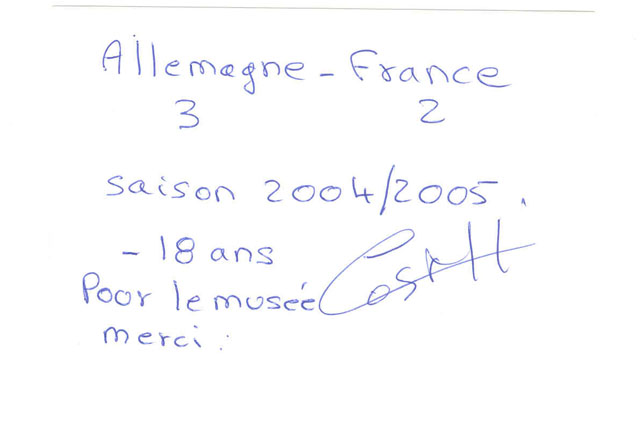 Allemagne - France
3 2
saison 2004/2005.
- 18 ans
Pour le musée
merci :